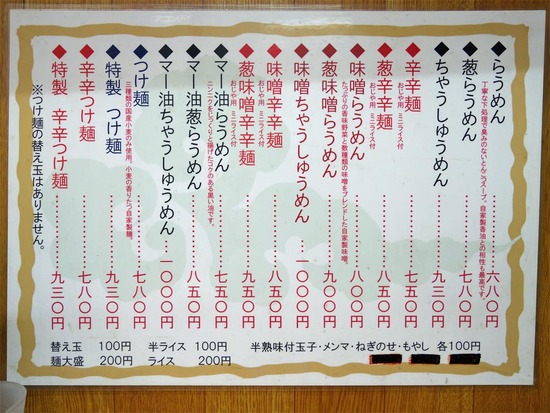 ◆らうめん……六八〇円
丁寧な下処理で臭みのないとんこつスープ。自家製香油との相性も最高です。
◆葱らうめん……七八〇円
◆ちゃうしゅうめん……九三〇円
◆辛辛麺……七五〇円
おじや用 ミニライス付
◆葱辛辛麺……八五〇円
おじや用 ミニライス付
◆味噌らうめん……八〇〇円
たっぷりの香味野菜と数種類の味噌をブレンドした自家製味噌。
◆葱味噌らうめん……九〇〇円
◆味噌ちゃうしゅうめん……一〇〇〇円
◆味噌辛辛麺……八五〇円
おじや用 ミニライス付
◆葱味噌辛辛麺……九五〇円
おじや用 ミニライス付
◆マー油らうめん……七五〇円
ニンニクをじっくりと揚げたコクのある黒い油です。
◆マー油葱らうめん……八五〇円
◆マー油ちゃうしゅうめん……一〇〇〇円
◆つけ麺……七八〇円
三種類の国産小麦のみ使用。小麦の香りたつ自家製麺。
◆特製 つけ麺……九三〇円
◆辛辛つけ麺……七八〇円
◆特製 辛辛つけ麺……九三〇円
※つけ麺の替え玉はありません。
替え玉 100円 半ライス 100円 半熟味付玉子・メンマ・ねぎのせ・もやし 各100円
麺大盛 200円 ライス 200円